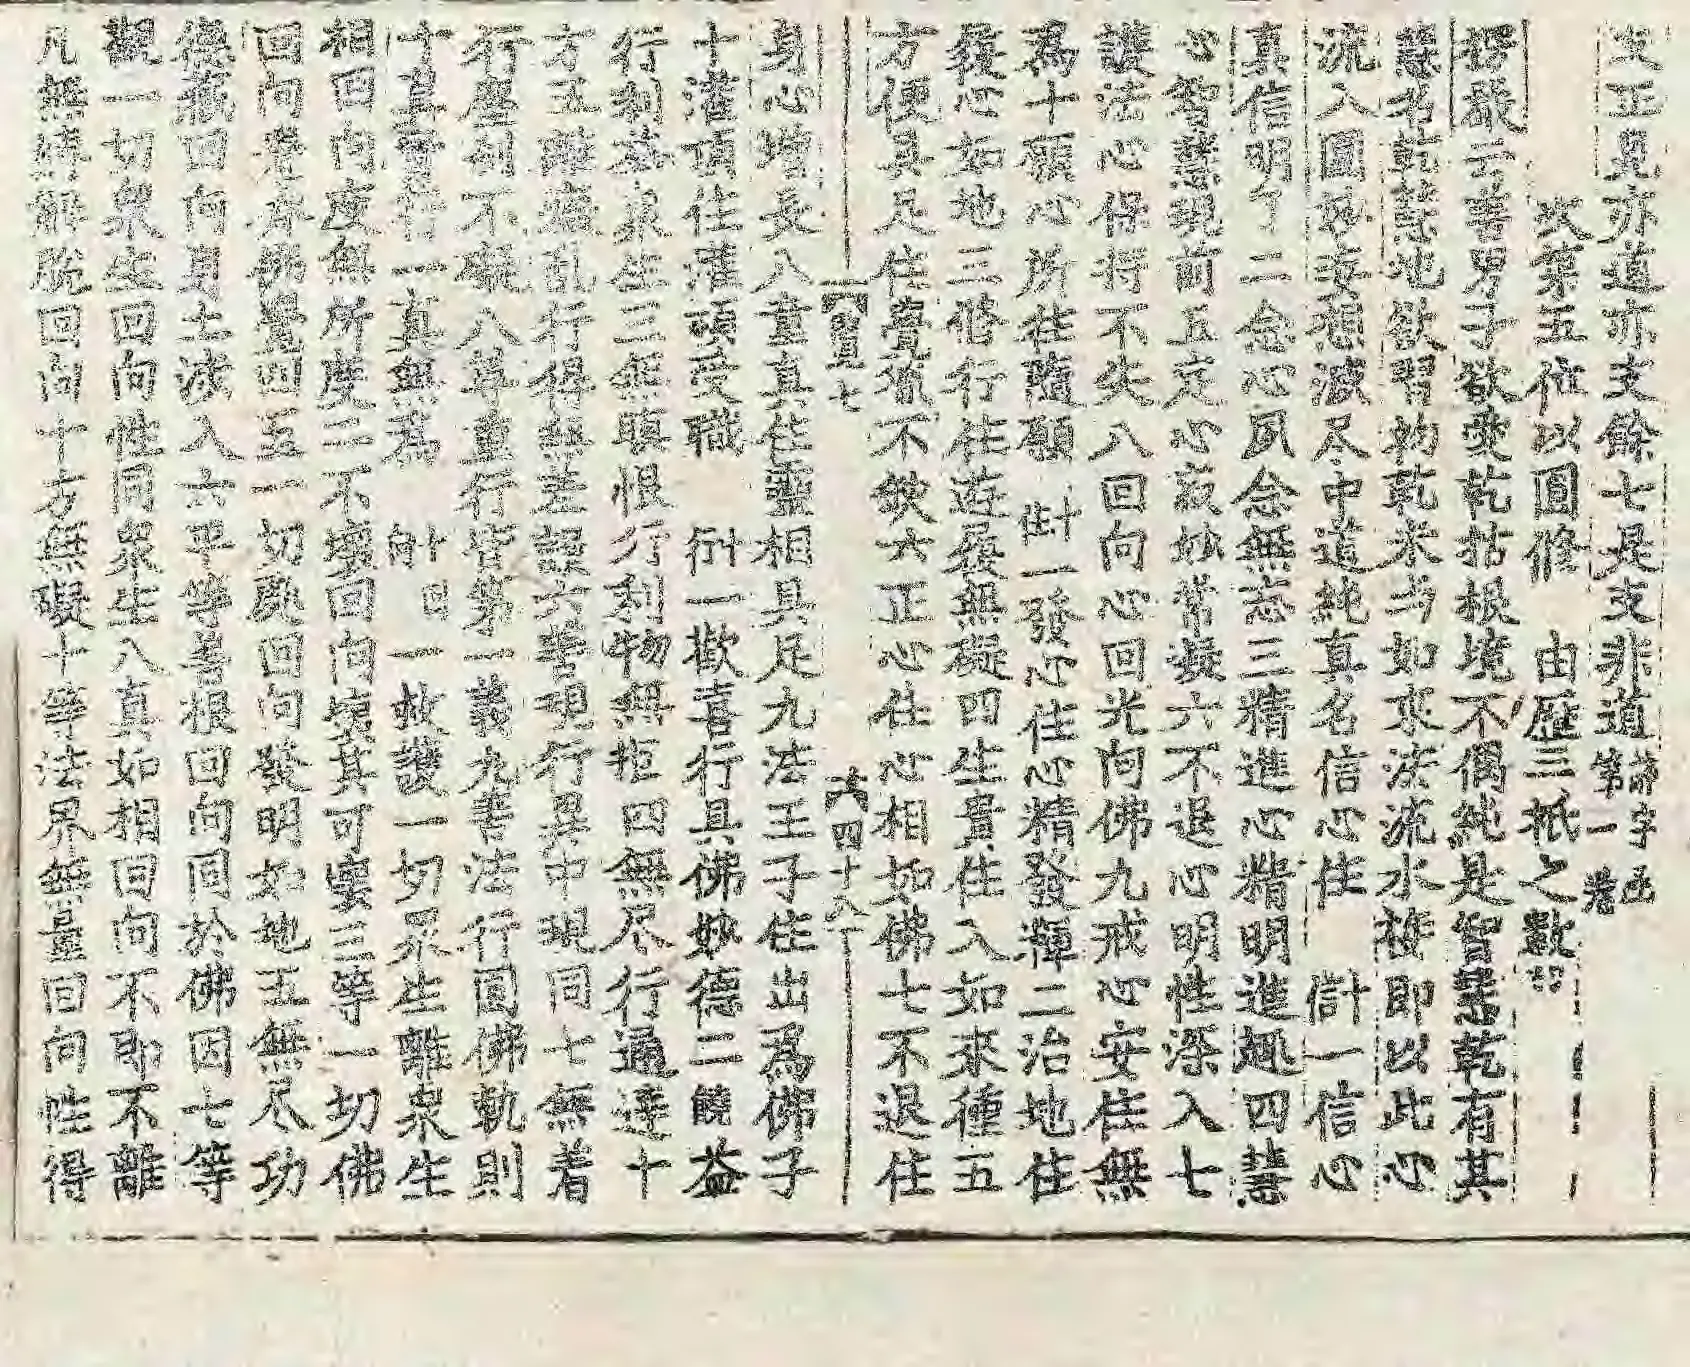 支正見亦道亦支餘七是支非道諦字函第一卷
次葉五位以圓修　由歷三祇之數
楞嚴云善男子欲愛乾枯根境不偶純是智慧乾有其
慧名乾慧地欲習初乾未与如來法流水接即以此心
流入圓妙妄想滅尽中道純真名信心住　十信一信心
真信明了二念心夙念無忘三精進心精明進趣四慧
心智慧現前五定心寂妙常凝六不退心明性深入七
護法心保持不失八回向心回光向佛九戒心安住無
為十願心所往隨願　十住一發心住心精發揮二治地住
發心如地三修行住遊履無礙四生貴住入如來種五
方便具足住㝵不缺六正心住心相如佛七不退住
四十八
身心增長八童真住靈相具足九法王子住出為佛子
十灌頂住灌頂受職　十行一歡喜行具佛妙德二饒益
行利益眾生三無瞋恨行利物無拒四無尽行通達十
方五離癡乱行得無差誤六善現行異中現同七無着
行塵刹不礙八尊重行皆第一義九善法行圓佛軌則
十真實行一真無為　十回向　一救護一切眾生離眾生
相回向度無所度二不壞回向壞其可壞三等一切佛
回向覺齊佛覺四至一切處回向發明如地五無尽功
德藏回向身土涉入六平等善根回向同於佛因七等
觀一切眾生回向性同眾生八真如相回向不即不離
九無縛解脫回向十方無礙十等法界無量回向性得